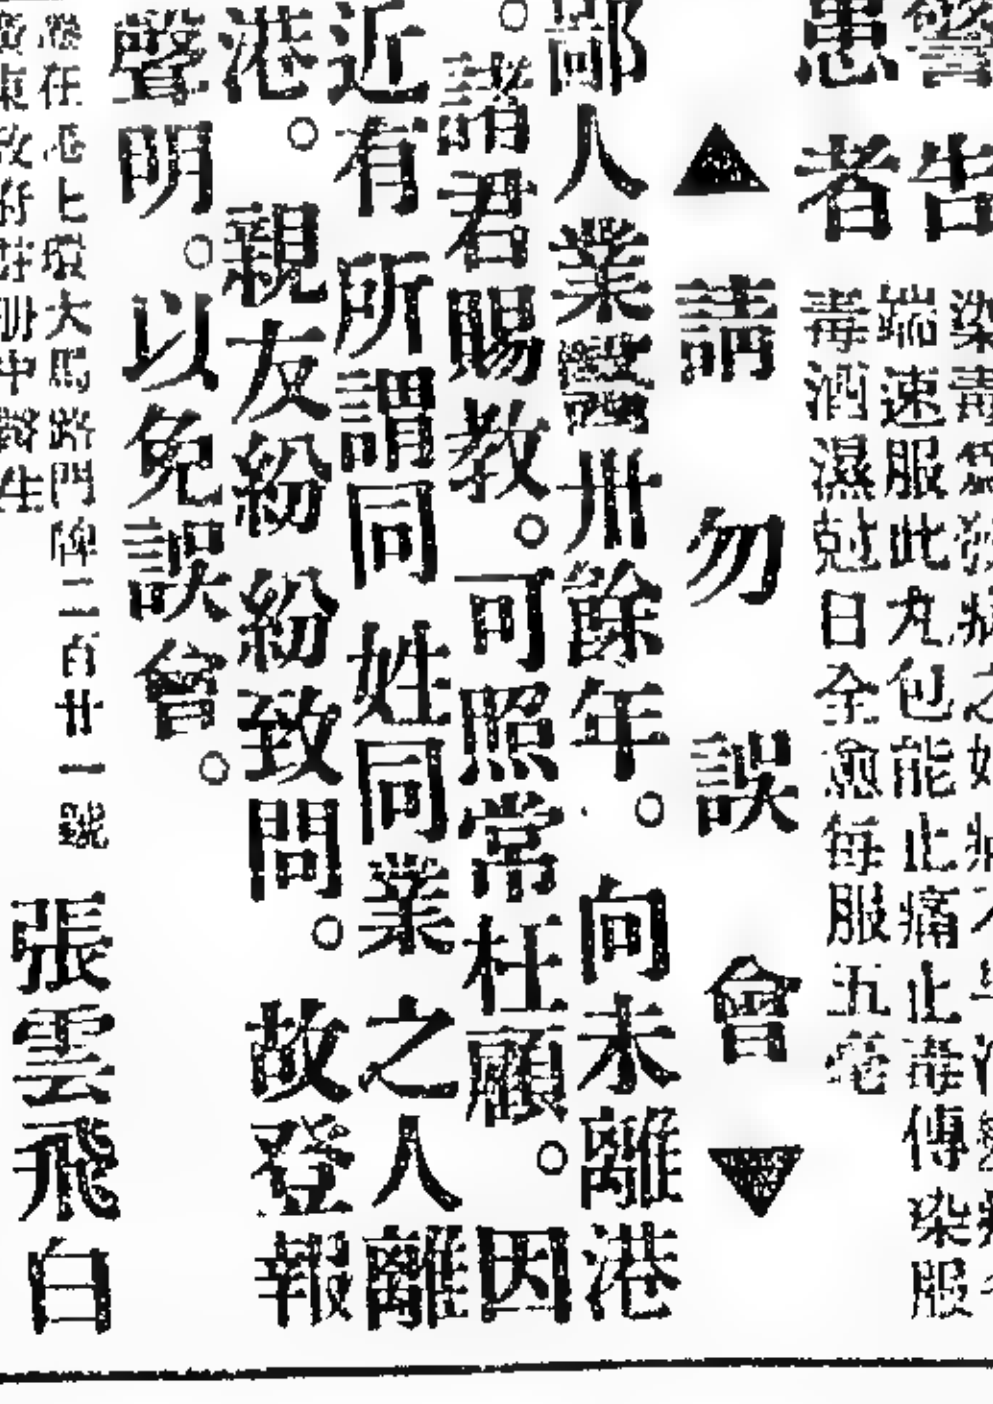 警告
患者
染毒
端速服此丸包能止痛止毒傳染服
毒酒濕尅日全愈每服五毫
▲請勿誤會▼
鄙人業醫卅餘年。向未離港
。諸君賜教。可照常枉顧。因
近有所謂同姓同業之人離
港。親友紛紛致問。故登報
聲明。以免誤會。
在港上環大馬路門牌二百廿一號
廣東政府註册中醫生
張雲飛白